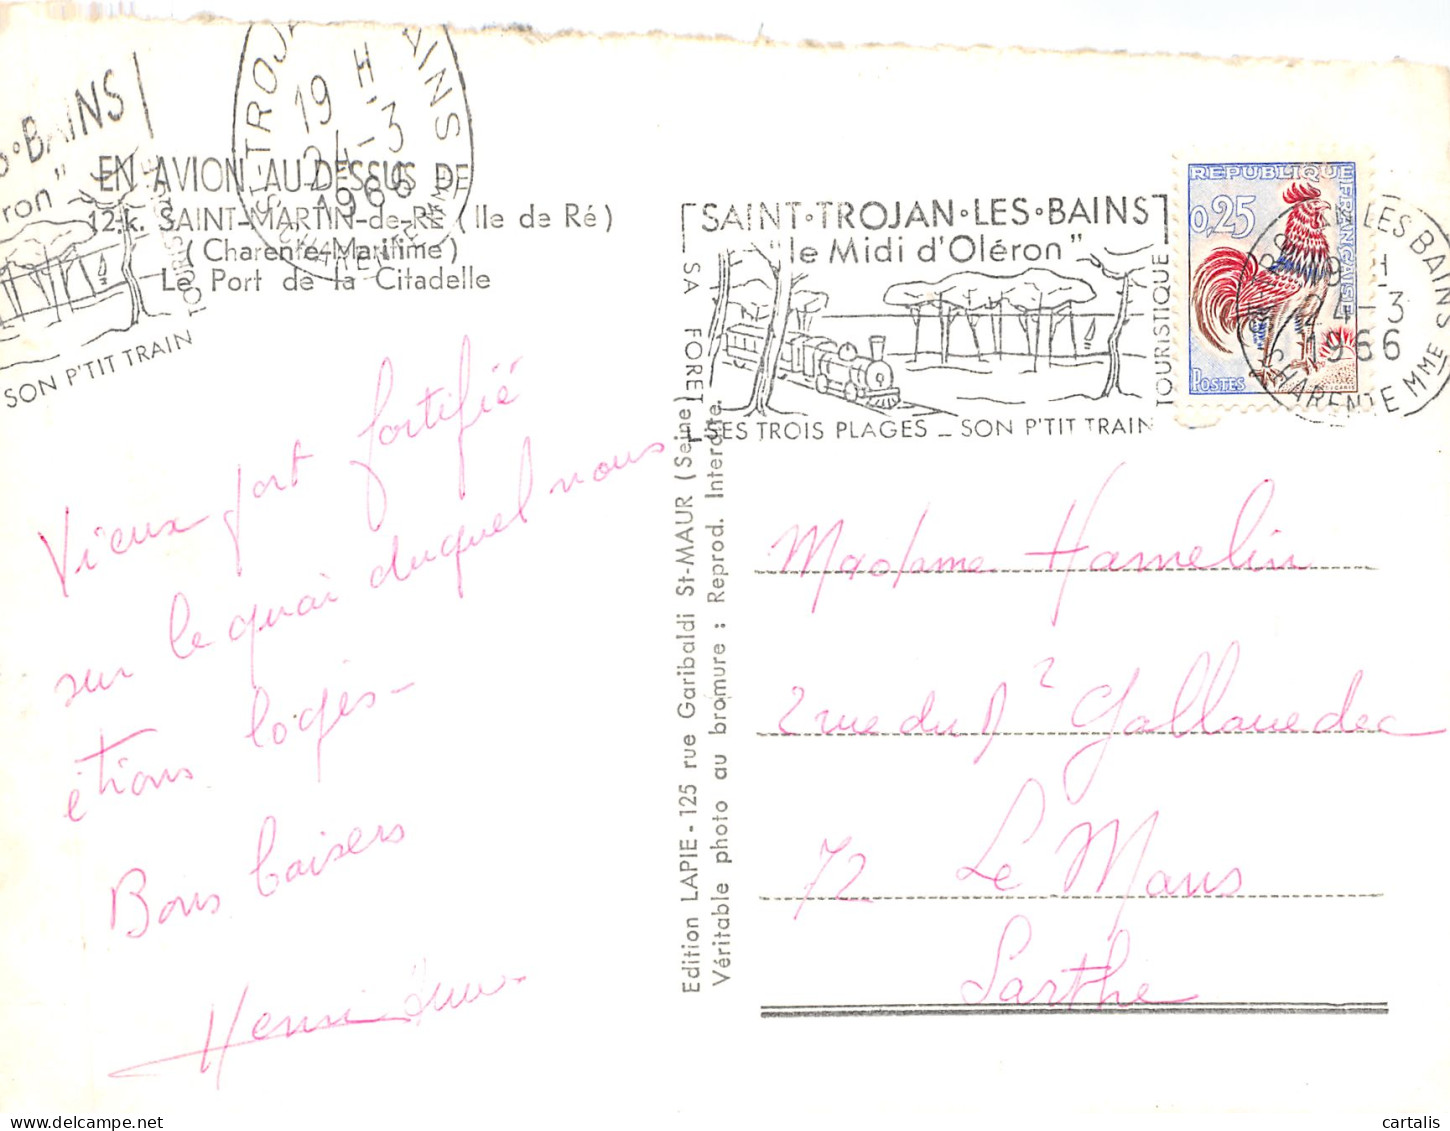 S•BAINS
ron"
SON P'TIT TRAIN
TOURISTIQUE
ST-TROJAN BAINS
19 H
24-3
1966
EN AVION AU-DESSUS DE
12.k. SAINT-MARTIN-de-RÉ (Ile de Ré)
(Charente-Maritime)
Le Port de la Citadelle
Vieux port fortifié
sur le quai duquel nous
étions logés -
Bons baisers
Edition LAPIE - 125 rue Garibaldi St-MAUR (Seine)
Véritable photo au bromure : Reprod. Interdite.
SAINT•TROJAN•LES•BAINS
"le Midi d'Oléron"
SA FORET
TOURISTIQUE
SES TROIS PLAGES _ SON P'TIT TRAIN
REPUBLIQUE
FRANÇAISE
0,25
POSTES
LES BAINS
19 H
24-3
1966
CHARENTE MME
Madame Hamelin
2 rue du Dr Gallouedec
72 Le Mans
Sarthe
cartalis
www.delcampe.net